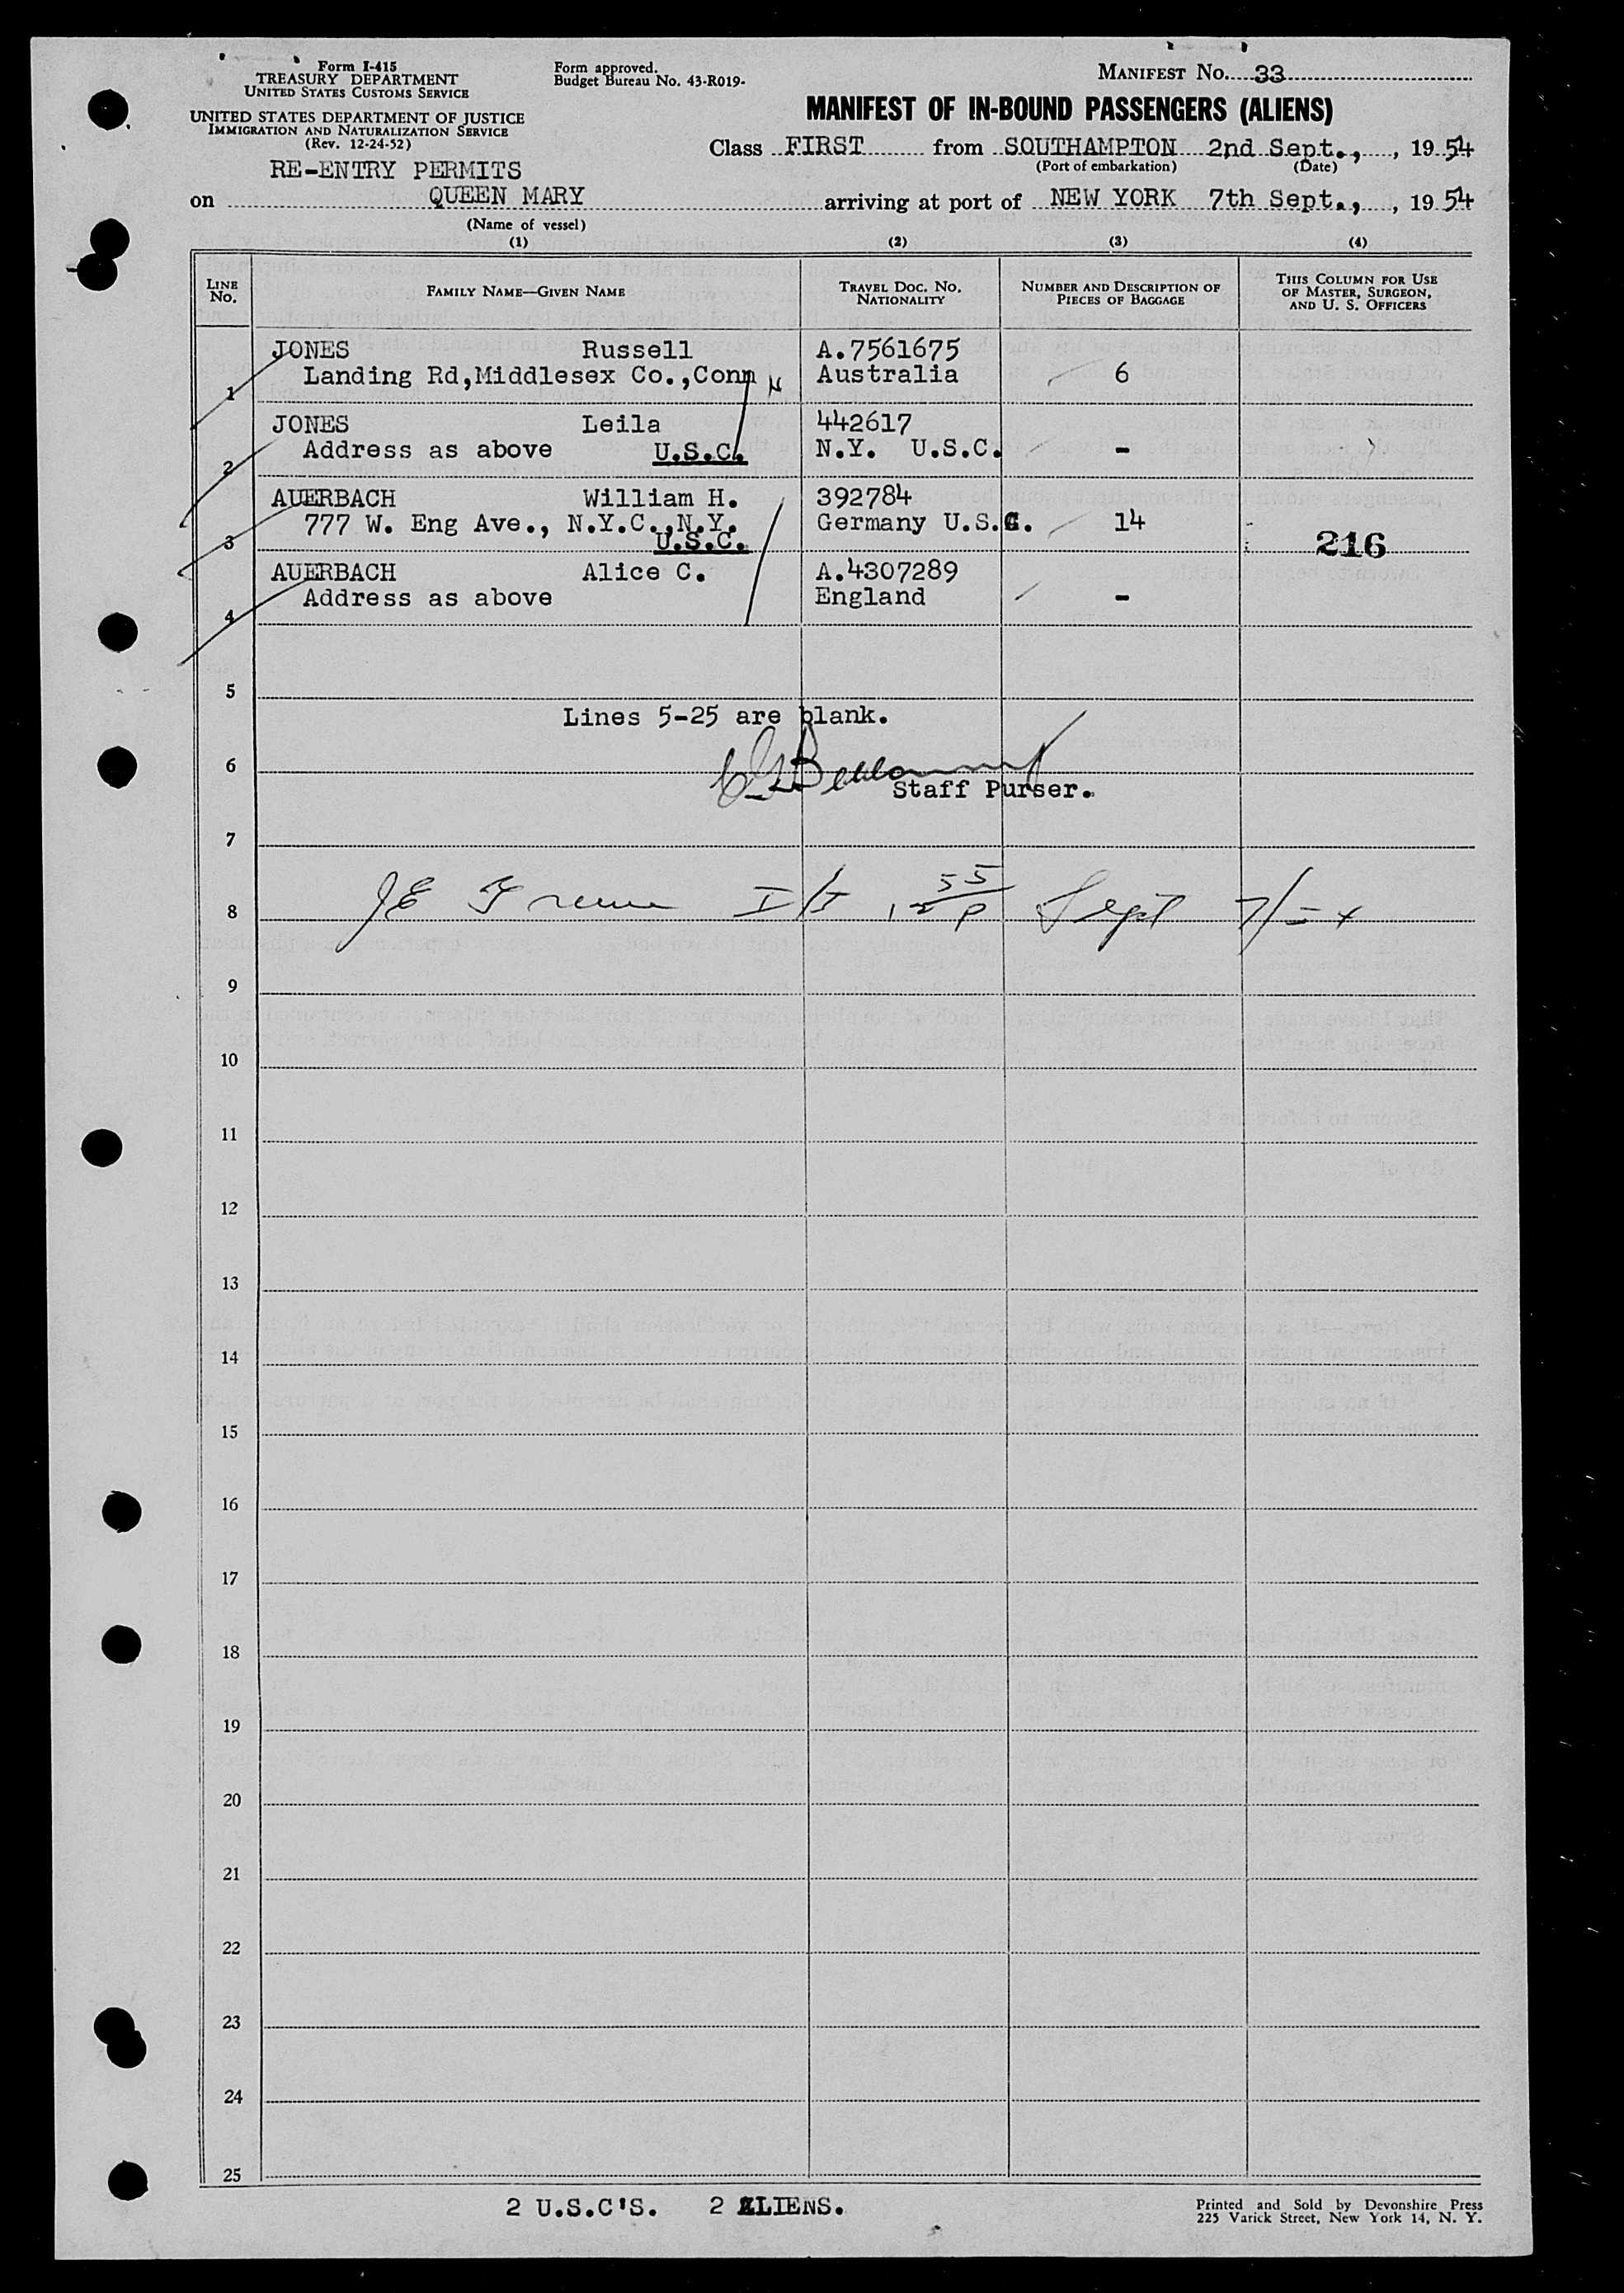 Form I-415
TREASURY DEPARTMENT
UNITED STATES CUSTOMS SERVICE
UNITED STATES DEPARTMENT OF JUSTICE
IMMIGRATION AND NATURALIZATION SERVICE
(Rev. 12-24-52)
Form approved.
Budget Bureau No. 43-R019-
MANIFEST NO. 33
MANIFEST OF IN-BOUND PASSENGERS (ALIENS)
Class FIRST from SOUTHAMPTON 2nd Sept., , 19 54
(Port of embarkation) (Date)
RE-ENTRY PERMITS
on QUEEN MARY arriving at port of NEW YORK 7th Sept., , 19 54
(Name of vessel)
(1) (2) (3) (4)
LINE NO. FAMILY NAME—GIVEN NAME TRAVEL DOC. NO. NATIONALITY NUMBER AND DESCRIPTION OF PIECES OF BAGGAGE THIS COLUMN FOR USE OF MASTER, SURGEON, AND U. S. OFFICERS
JONES Russell A.7561675
1 Landing Rd,Middlesex Co.,Conn Australia 6
JONES Leila 442617
2 Address as above U.S.C. N.Y. U.S.C. -
AUERBACH William H. 392784
777 W. Eng Ave., N.Y.C.,N.Y. Germany U.S.C. 14
3 U.S.C. 216
AUERBACH Alice C. A.4307289
4 Address as above England -
5
Lines 5-25 are blank.
6
Staff Purser.
7
8 Sept 7/54
9
10
11
12
13
14
15
16
17
18
19
20
21
22
23
24
25
2 U.S.C'S. 2 ALIENS.
Printed and Sold by Devonshire Press
225 Varick Street, New York 14, N. Y.